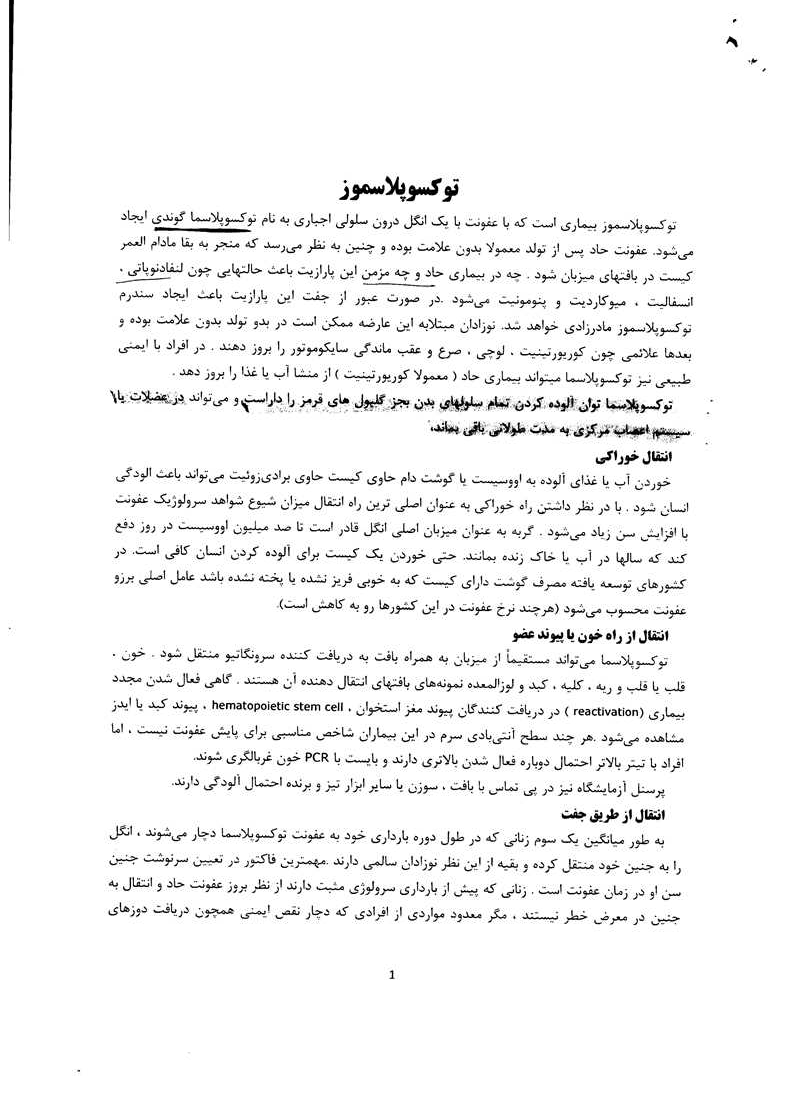 توکسوپلاسموز
توکسوپلاسموز بیماری است که با عفونت با یک انگل درون سلولی اجباری به نام توکسوپلاسما گوندی ایجاد
می‌شود. عفونت حاد پس از تولد معمولا بدون علامت بوده و چنین به نظر می‌رسد که منجر به بقا مادام العمر
کیست در بافتهای میزبان شود . چه در بیماری حاد و چه مزمن این پارازیت باعث حالتهایی چون لنفادنوپاتی ،
انسفالیت ، میوکاردیت و پنومونیت می‌شود .در صورت عبور از جفت این پارازیت باعث ایجاد سندرم
توکسوپلاسموز مادرزادی خواهد شد. نوزادان مبتلابه این عارضه ممکن است در بدو تولد بدون علامت بوده و
بعدها علائمی چون کوریورتینیت ، لوچی ، صرع و عقب ماندگی سایکوموتور را بروز دهند . در افراد با ایمنی
طبیعی نیز توکسوپلاسما میتواند بیماری حاد ( معمولا کوریورتینیت ) از منشا آب یا غذا را بروز دهد .
توکسوپلاسما توان آلوده کردن تمام سلولهای بدن بجز گلبول های قرمز را داراست و می‌تواند در عضلات یا
سیستم اعصاب مرکزی به مدت طولانی باقی بماند،
انتقال خوراکی
خوردن آب یا غذای آلوده به اووسیست یا گوشت دام حاوی کیست حاوی برادی‌زوئیت می‌تواند باعث الودگی
انسان شود . با در نظر داشتن راه خوراکی به عنوان اصلی ترین راه انتقال میزان شیوع شواهد سرولوژیک عفونت
با افزایش سن زیاد می‌شود . گربه به عنوان میزبان اصلی انگل قادر است تا صد میلیون اووسیست در روز دفع
کند که سالها در آب یا خاک زنده بمانند. حتی خوردن یک کیست برای آلوده کردن انسان کافی است. در
کشورهای توسعه یافته مصرف گوشت دارای کیست که به خوبی فریز نشده یا پخته نشده باشد عامل اصلی برزو
عفونت محسوب می‌شود (هرچند نرخ عفونت در این کشورها رو به کاهش است).
انتقال از راه خون یا پیوند عضو
توکسوپلاسما می‌تواند مستقیماً از میزبان به همراه بافت به دریافت کننده سرونگاتیو منتقل شود . خون ،
قلب یا قلب و ریه ، کلیه ، کبد و لوزالمعده نمونه‌های بافتهای انتقال دهنده آن هستند . گاهی فعال شدن مجدد
بیماری (reactivation ) در دریافت کنندگان پیوند مغز استخوان ، hematopoietic stem cell ، پیوند کبد یا ایدز
مشاهده می‌شود .هر چند سطح آنتی‌بادی سرم در این بیماران شاخص مناسبی برای پایش عفونت نیست ، اما
افراد با تیتر بالاتر احتمال دوباره فعال شدن بالاتری دارند و بایست با PCR خون غربالگری شوند.
پرسنل آزمایشگاه نیز در پی تماس با بافت ، سوزن یا سایر ابزار تیز و برنده احتمال آلودگی دارند.
انتقال از طریق جفت
به طور میانگین یک سوم زنانی که در طول دوره بارداری خود به عفونت توکسوپلاسما دچار می‌شوند ، انگل
را به جنین خود منتقل کرده و بقیه از این نظر نوزادان سالمی دارند .مهمترین فاکتور در تعیین سرنوشت جنین
سن او در زمان عفونت است . زنانی که پیش از بارداری سرولوژی مثبت دارند از نظر بروز عفونت حاد و انتقال به
جنین در معرض خطر نیستند ، مگر معدود مواردی از افرادی که دچار نقص ایمنی همچون دریافت دوزهای
1